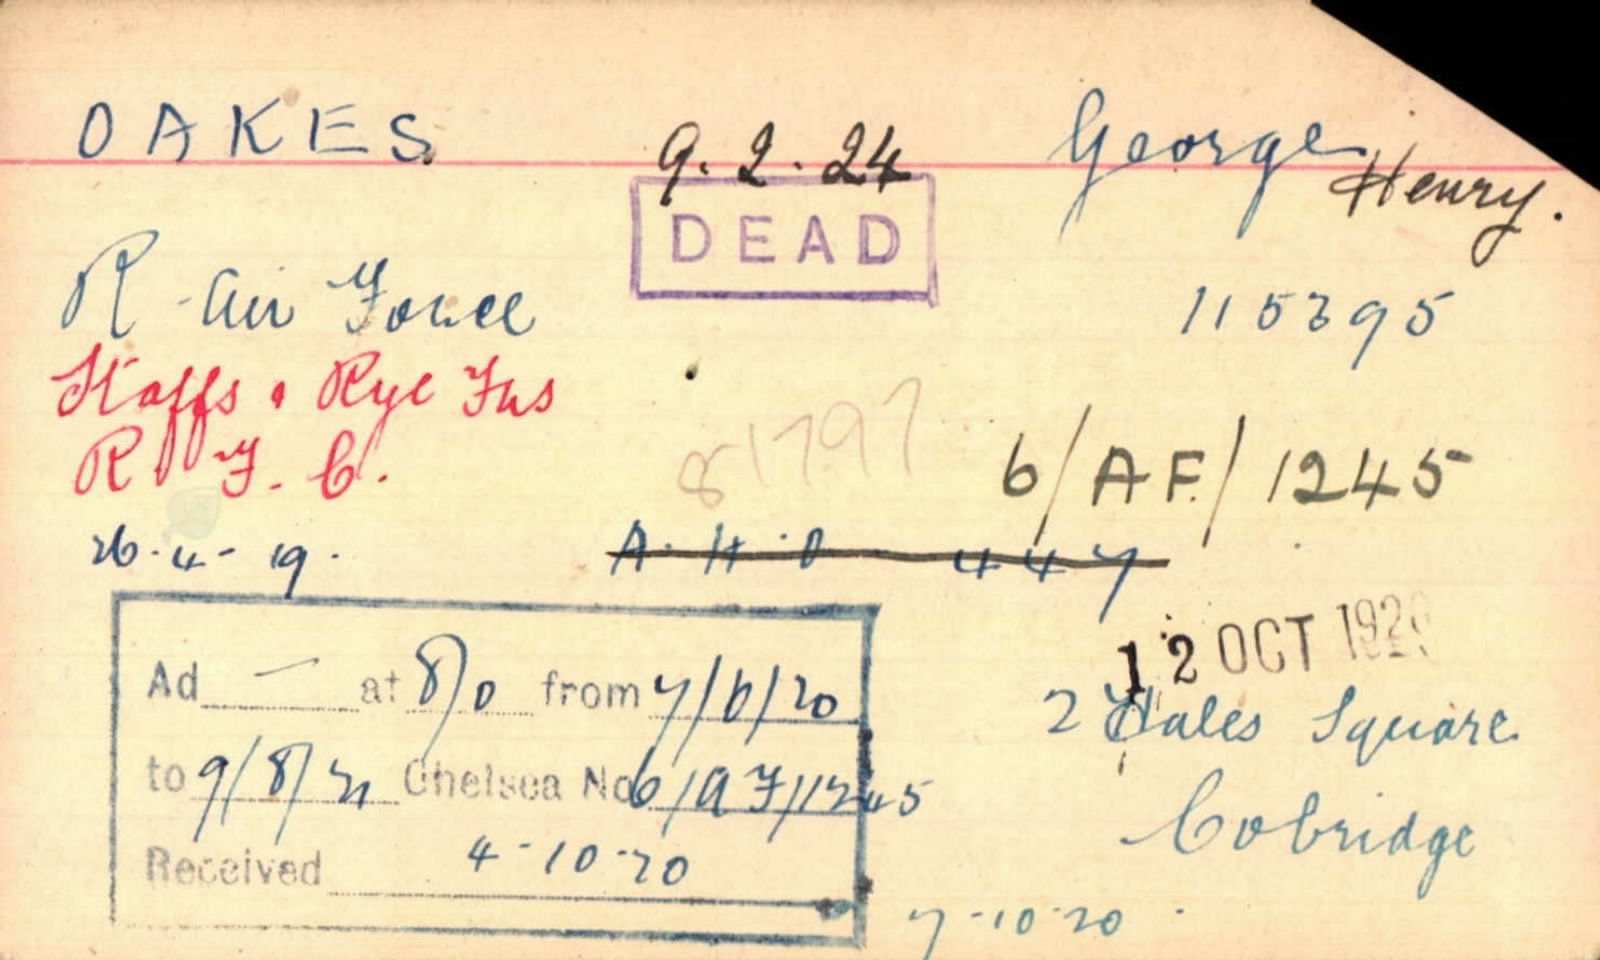 OAKES 9.2.24 George Henry.
DEAD
R. Air Force 115395
Staffs. Rye Fus
81797
R. F. C. 6/AF/1245
26.4-19. A.H.O 447
12 OCT 1920
Ad — at 8/0 from 7/6/20
2 Hales Square
to 9/8/21 Chelsea No 6/AF/1245
Cobridge
Received 4-10-20
7-10-20